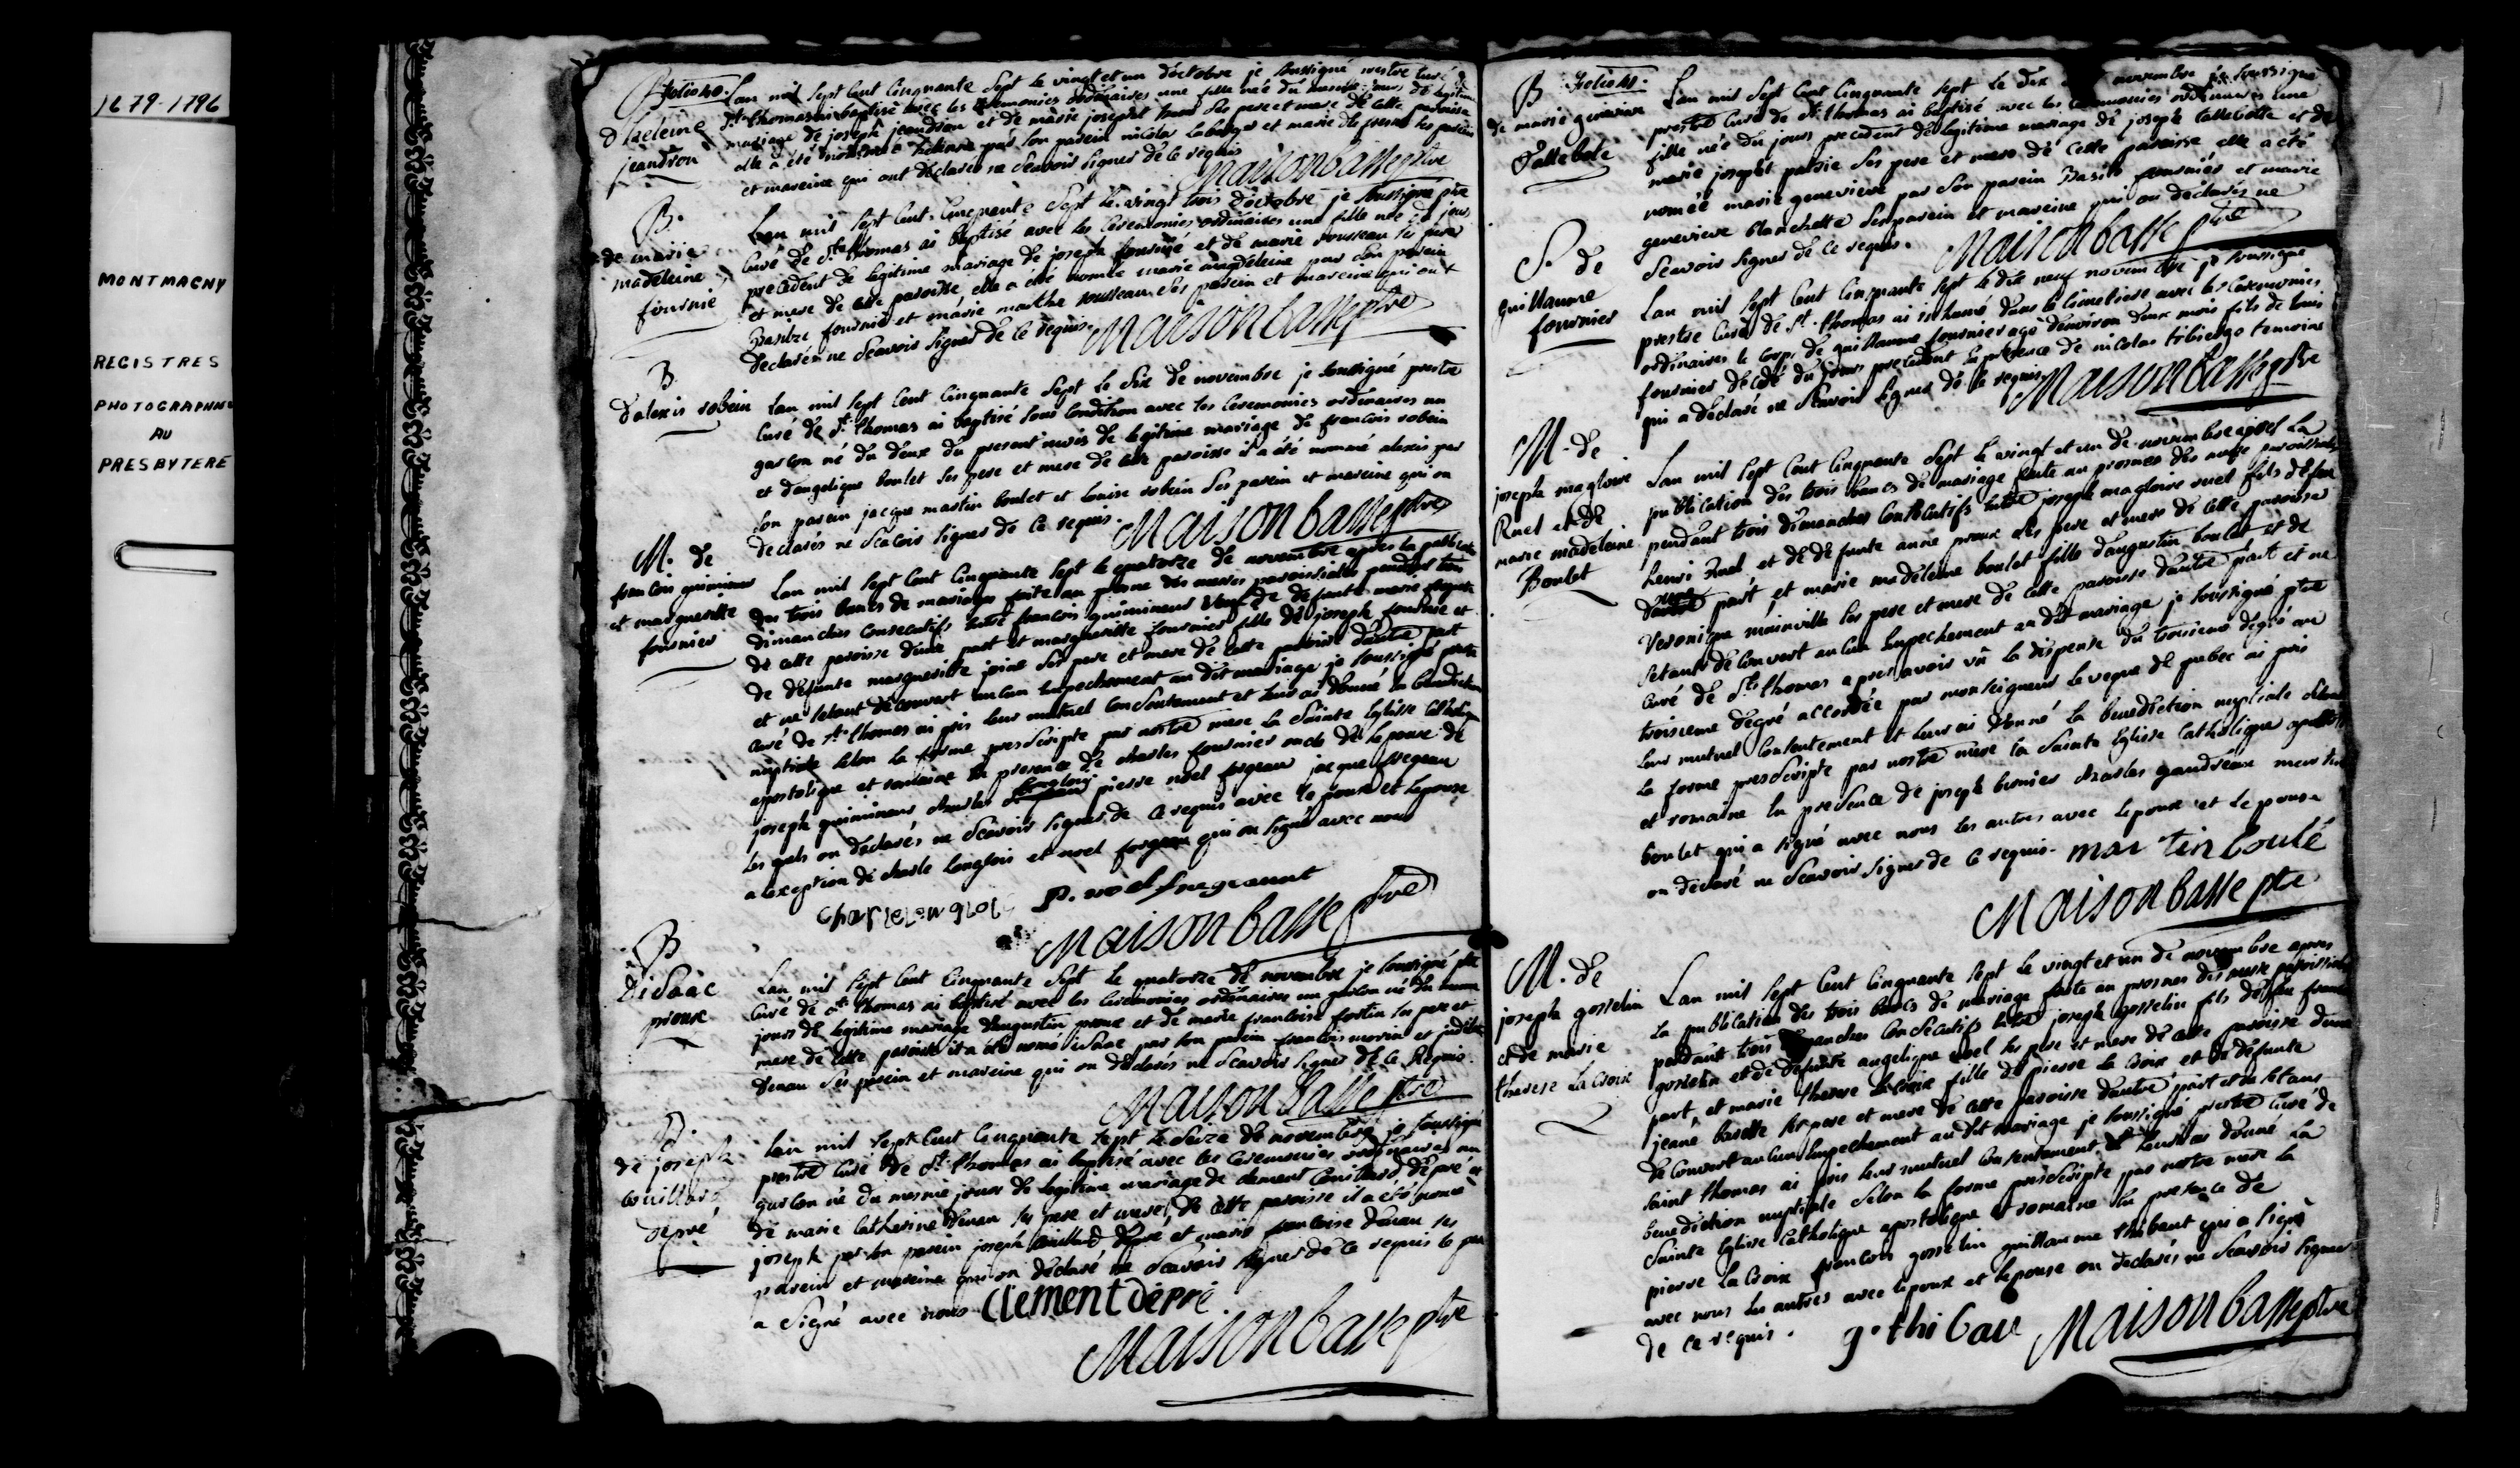 1679-1796
MONTMAGNY
REGISTRES
PHOTOGRAPHIÉ
AU
PRESBYTERE
B folio 40.
d'heleine
jeandron
Lan mil sept cent cinquante sept le vingt et un d'octobre je soussigné prestre curé de
St thomas ai baptisé avec les ceremonies ordinaires une fille née du mesme jour de legitime
mariage de joseph jeandron et de marie josephte ses pere et mere de cette paroisse
elle a été nommée heleine par son parein nicolas et marie ses parein
et mareine qui ont declarés ne scavoir signer de ce requis
Maisonbasse ptre
B.
de marie
madeleine
fournié
Lan mil sept cent cinquante sept le vingt trois d'octobre je soussigné ptre
curé de St thomas ai baptisé avec les ceremonies ordinaires une fille née du jour
precedent de legitime mariage de joseph fournié et de marie rousseau ses pere
et mere de cette paroisse elle a été nomée marie magdeleine par son parein
fournié et marie marthe rousseau ses parein et mareine qui ont
declarés ne scavoir signer de ce requis.
Maisonbasse ptre
B.
d'alexis robein
Lan mil sept cent cinquante sept le six de novembre je soussigné prestre
curé de St thomas ai baptisé sous condition avec les ceremonies ordinaires un
garcon né du deux du present mois de legitime mariage de francois robein
et d'angelique boulet ses pere et mere de cette paroisse il a été nommé alexis par
son parein jacque martin boulet et louise robein ses parein et mareine qui on
declarés ne scavoir signer de ce requis.
Maisonbasse ptre
M. de
francois quimineur
et marguerite
fournier
Lan mil sept cent cinquante sept le quatorze de novembre apres la publication
des trois bancs de mariage faite au prosne des messes paroissiales pendant trois
dimanches consecutifs entre francois quimineur veuf de defunte marie
de cette paroisse d'une part et marguerite fournier fille de joseph fournier et
de defunte marguerite ses pere et mere de cette paroisse d'autre part
et ne setant decouvert aucun empechement au dit mariage je soussigné prestre
curé de St thomas ai pris leur mutuel consentement et leur ai donné la benediction
nuptiale selon la forme prescripte par nostre mere la sainte eglise catholique
apostolique et romaine en presence de charles fournier oncle de lepouse de
joseph quimineur charles langlois pierre noel fregeau jacque fregeau
les quels on declarés ne scavoir signer de ce requis avec lepoux et lepouse
a lexception de charle langlois et noel fregeau qui on signé avec nous
charle langlois P. noel fregeaut
Maisonbasse ptre
B
d'isaac
proux
Lan mil sept cent cinquante sept le quatorze de novembre je soussigné ptre
curé de St thomas ai baptisé avec les ceremonies ordinaires un garcon né du mesme
jour de legitime mariage d'augustin proux et de marie francoise fortin ses pere et
mere de cette paroisse il a été nomé isaac par son parein francois morin et
denau ses parein et mareine qui on declarés ne scavoir signer de ce requis.
Maisonbasse ptre
B.
de joseph
couillard
depré
Lan mil sept cent cinquante sept le seize de novembre je soussigné
prestre curé de St thomas ai baptisé avec les ceremonies ordinaires un
garcon né du mesme jour de legitime mariage de clement couillard depré et
de marie catherine denau ses pere et mere de cette paroisse il a été nomé
joseph par son parein joseph couillard depré et marie francoise denau ses
parein et mareine qui on declaré ne scavoir signer de ce requis le pere
a signé avec nous clement depre.
Maisonbasse ptre
B folio 41.
de marie genevieve
Tallebote
Lan mil sept cent cinquante sept le dix novembre je soussigné
prestre curé de St thomas ai baptisé avec les ceremonies ordinaires une
fille née du jour precedent de legitime mariage de joseph tallebotte et de
marie josepht ses pere et mere de cette paroisse elle a été
nomée marie genevieve par son parein Basile fournier et marie
genevieve blanchette ses parein et mareine qui on declarés ne
scavoir signer de ce requis.
Maisonbasse ptre
S. de
guillaume
fournier
Lan mil sept cent cinquante sept le dix neuf novembre je soussigné
prestre curé de St. thomas ai inhumé dans le cimetiere avec les ceremonies
ordinaires le corp de guillaume fournier agé denviron deux mois fils de louis
fournier decedé du jour precedent en presence de nicolas temoins
qui a declaré ne scavoir signer de ce requis
Maisonbasse ptre
M. de
joseph magloire
Ruel et de
marie madeleine
Boulet
Lan mil sept cent cinquante sept le vingt et un de novembre apres la
publication des trois bancs de mariage faite au prosnes des messe paroissiale
pendant trois dimanches consecutifs entre joseph magloire ruel fils de feu
henri Ruel et de defunte anne proux ses pere et mere de cette paroisse
dune part, et marie madeleine boulet fille daugustin boulet et de
Veronique mainville ses pere et mere de cette paroisse dautre part et ne
setant decouvert aucun empechement au dit mariage je soussigné ptre
curé de St thomas apres avoir vû la dispense du troisieme degré au
troisieme degré accordée par monseigneur leveque de quebec ai pris
leur mutuel consentement et leur ai donné la benediction nuptiale selon
la forme prescripte par nostre mere la sainte eglise catholique apostolique
et romaine en presence de joseph bernier charles gaudreau martin
boulet qui a signé avec nous les autres avec lepoux et lepouse
on declaré ne scavoir signer de ce requis. martin boulé
Maisonbasse ptre
M. de
joseph gosselin
et de marie
therese La Croix
Lan mil sept cent cinquante sept le vingt et un de novembre apres
la publication des trois bancs de mariage faite au prosnes des messe paroissiale
pendant trois dimanches consecutifs entre joseph gosselin fils de feu francois
gosselin et de defunte angelique ses pere et mere de cette paroisse dune
part, et marie therese lacroix fille de pierre la croix et de defunte
jeane basette ses pere et mere de cette paroisse dautre part et ne setant
decouvert aucun empechement au dit mariage je soussigné prestre curé de
saint thomas ai pris leur mutuel consentement et leur ai donné la
benediction nuptiale selon la forme prescripte par nostre mere la
sainte eglise catholique apostolique et romaine en presence de
pierre la croix francois gosselin guillaume thibaut qui a signé
avec nous les autres avec lepoux et lepouse on declarés ne scavoir signer
de ce requis. g. thibau Maisonbasse ptre